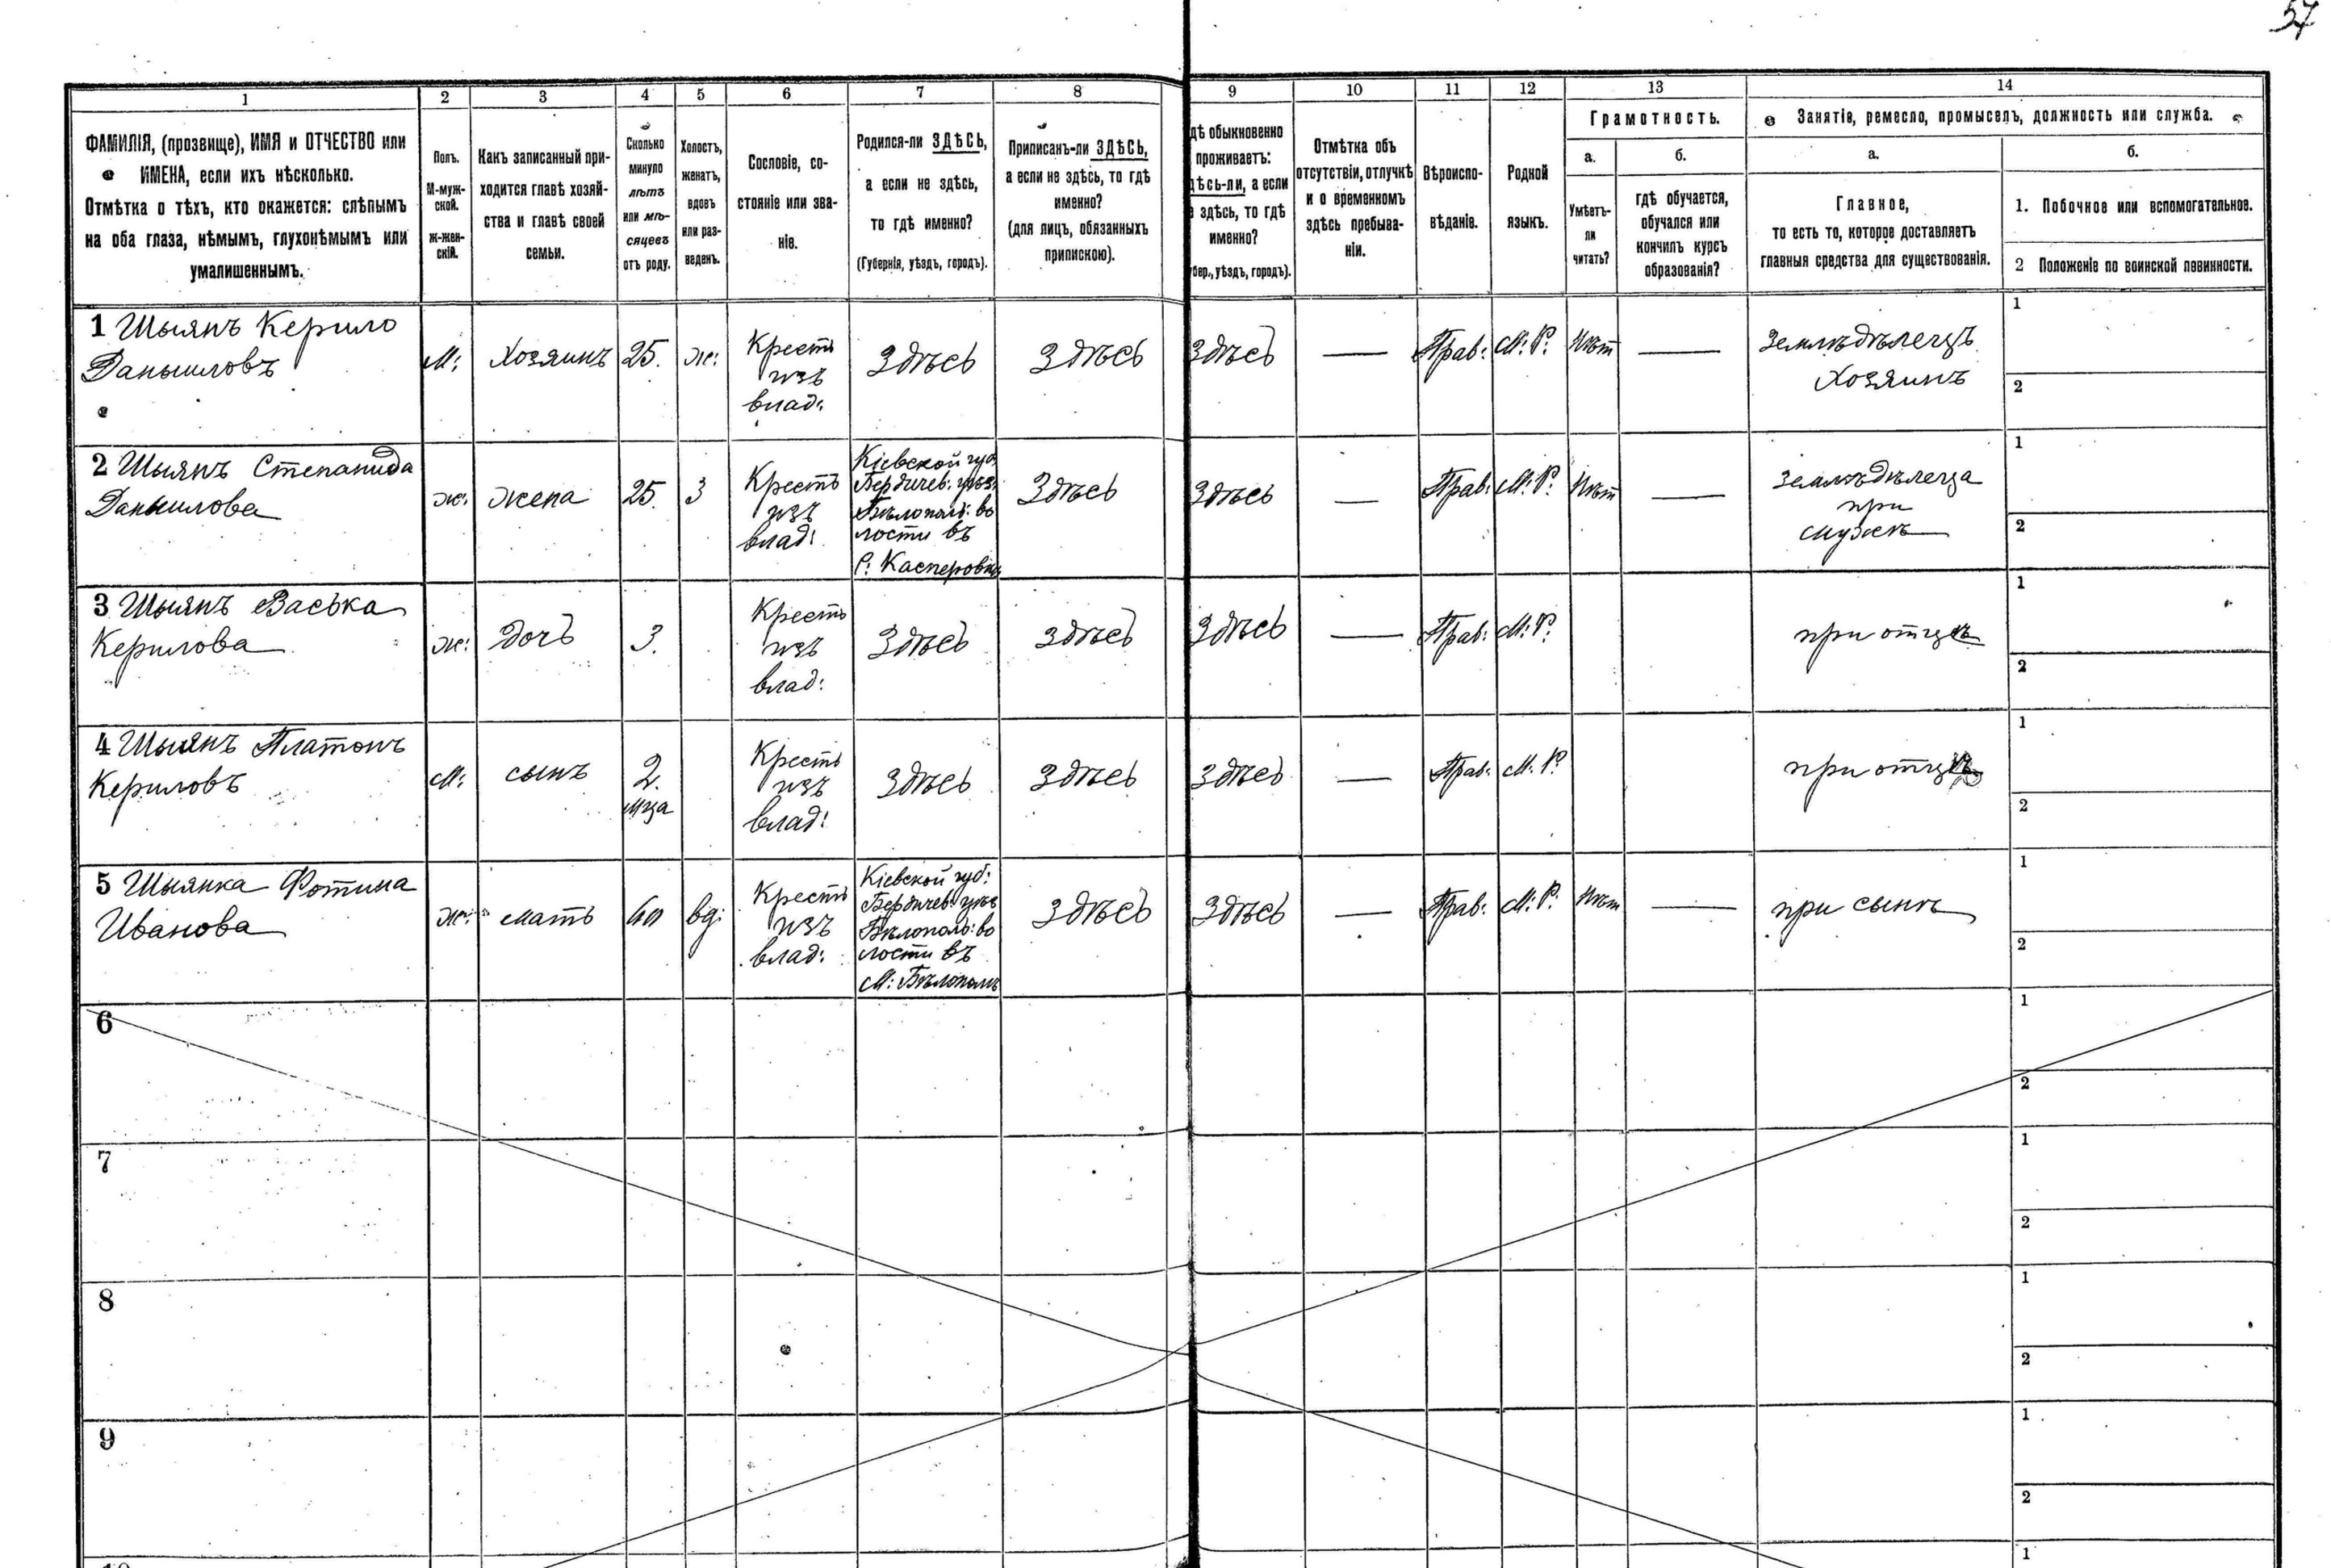 57
1 2 3 4 5 6 7 8 9 10 11 12 13 14
ФАМИЛІЯ, (прозвище), ИМЯ и ОТЧЕСТВО или
ИМЕНА, если ихъ нѣсколько.
Отмѣтка о тѣхъ, кто окажется: слѣпымъ
на оба глаза, нѣмымъ, глухонѣмымъ или
умалишеннымъ.
Полъ.
М-муж-
ской.
ж-жен-
скій.
Какъ записанный при-
ходится главѣ хозяй-
ства и главѣ своей
семьи.
Сколько
минуло
лѣтъ
или мѣ-
сяцевъ
отъ роду.
Холостъ,
женатъ,
вдовъ
или раз-
веденъ.
Сословіе, со-
стояніе или зва-
ніе.
Родился-ли ЗДѢСЬ,
а если не здѣсь,
то гдѣ именно?
(Губернія, уѣздъ, городъ).
Приписанъ-ли ЗДѢСЬ,
а если не здѣсь, то гдѣ
именно?
(для лицъ, обязанныхъ
припискою).
дѣ обыкновенно
проживаетъ:
дѣсь-ли, а если
здѣсь, то гдѣ
именно?
бер., уѣздъ, городъ).
Отмѣтка объ
отсутствіи, отлучкѣ
и о временномъ
здѣсь пребыва-
ніи.
Вѣроиспо-
вѣданіе.
Родной
языкъ.
Грамотность.
а.
Умѣетъ-
ли
читать?
б.
гдѣ обучается,
обучался или
кончилъ курсъ
образованія?
Занятіе, ремесло, промыселъ, должность или служба.
а.
Главное,
то есть то, которое доставляетъ
главныя средства для существованія.
б.
1. Побочное или вспомогательное.
2 Положеніе по воинской повинности.
1 Шыянъ Керило
Даныиловъ
М:
Хозяинъ
25.
ж:
Крест
изъ
влад:
Здѣсь
Здѣсь
Здѣсь
—
Прав:
М: Р:
Нѣт
—
Землѣдѣлецъ
Хозяинъ
1
2
2 Шыянъ Степанида
Даныилова
ж:
жена
25.
З
Крестъ
изъ
влад:
Кіевской губ
Бердичев: уѣз:
Бѣлопол: во
лости въ
С: Касперовка
Здѣсь
Здѣсь
—
Прав:
М: Р:
Нѣт
—
Землѣдѣлеца
при
мужѣ
1
2
3 Шыянъ Васька
Керилова
ж:
дочь
3.
Крестъ
изъ
влад:
Здѣсь
Здѣсь
Здѣсь
—
Прав:
М: Р:
при отцѣ
1
2
4 Шыянъ Платонъ
Кериловъ
М:
сынъ
2.
мца
Крестъ
изъ
влад:
Здѣсь
Здѣсь
Здѣсь
—
Прав:
М: Р:
при отцѣ
1
2
5 Шыянка Фотина
Иванова
ж:
мать
вд:
Крестъ
изъ
влад:
Кіевской губ:
Бердичев: уѣз
Бѣлополь: во
лости въ
М: Бѣлополь
Здѣсь
Здѣсь
—
Прав:
М: Р:
Нѣт
—
при сынѣ
1
2
6
1
2
7
1
2
8
1
2
9
1
2
1